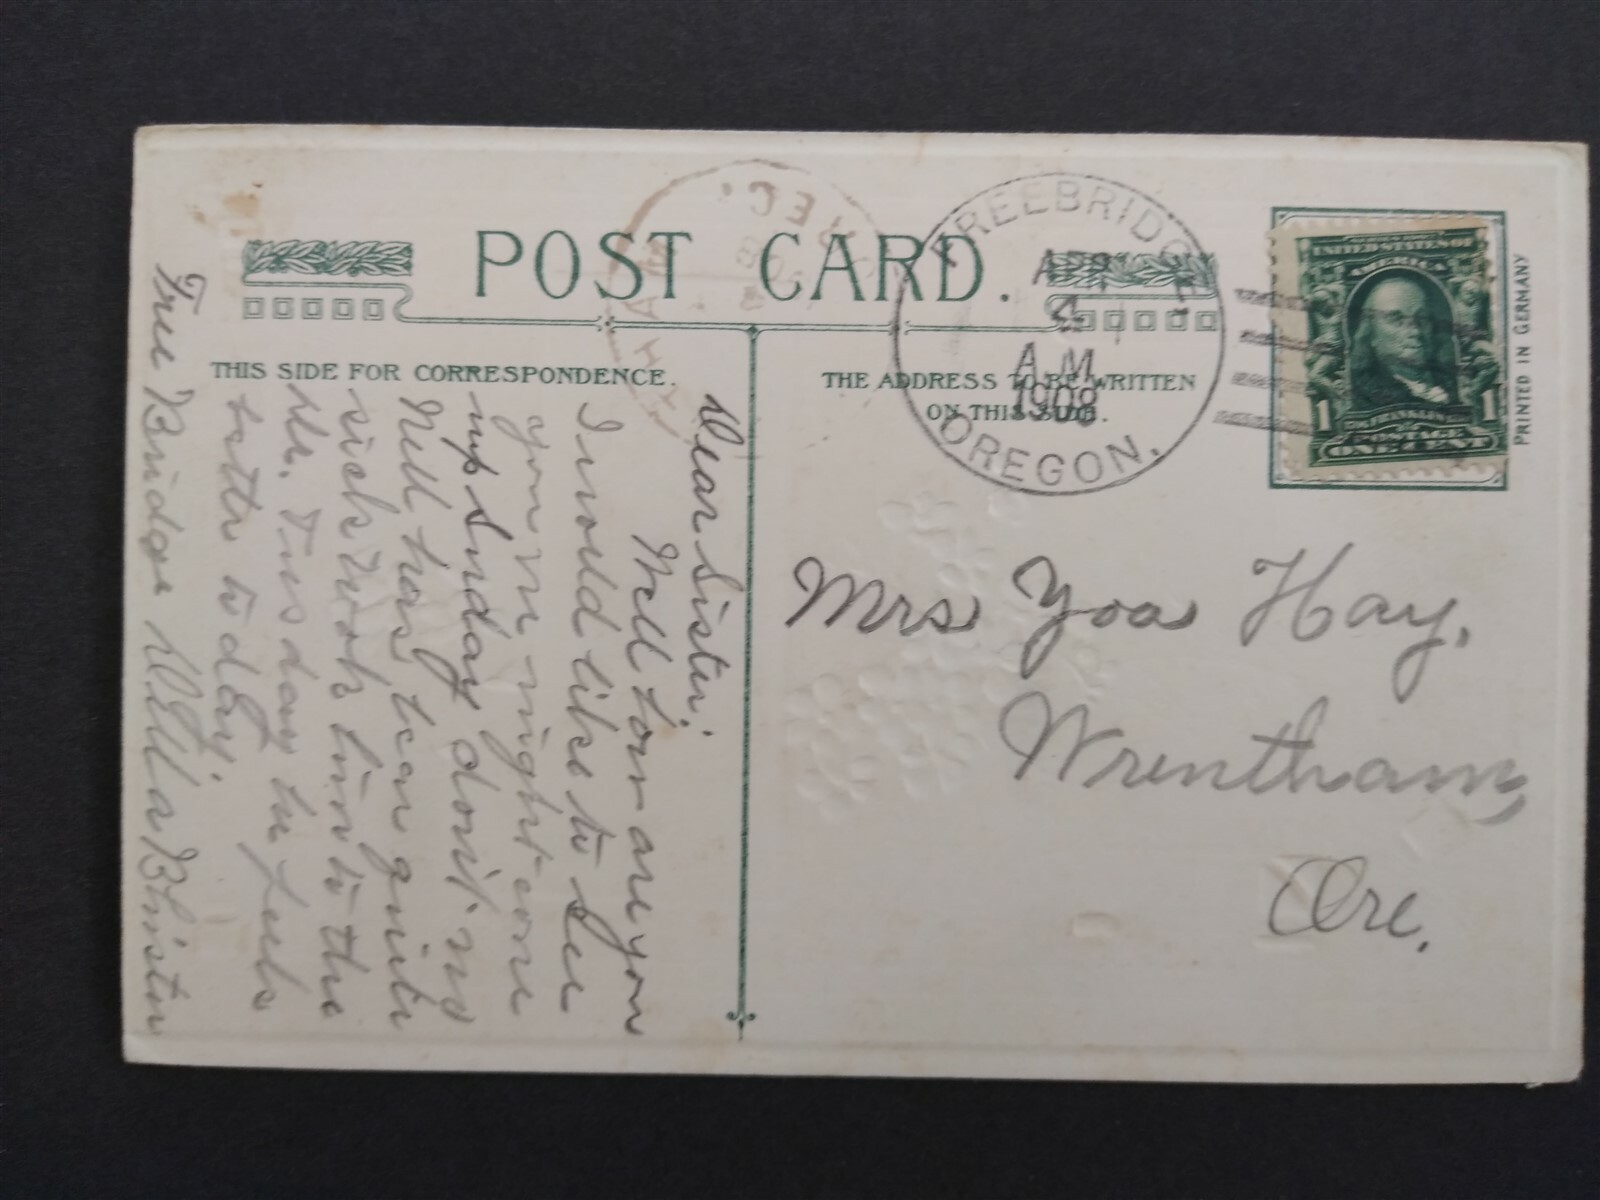 POST CARD.
THIS SIDE FOR CORRESPONDENCE.
THE ADDRESS TO BE WRITTEN
ON THIS SIDE.
FREEBRIDGE
APR
4
A.M.
1908
OREGON.
REC.
UNITED STATES OF
AMERICA
1
1
FRANKLIN
POSTAGE
ONE CENT
PRINTED IN GERMANY
Mrs Hay,
Wrentham,
Ore.
Dear Sister.
Well how are you
I would like to see
you
up Sunday don't no
Well has bean quite
sick took him to the
Dr. Tusday he feels
better to day.
Free Bridge Della